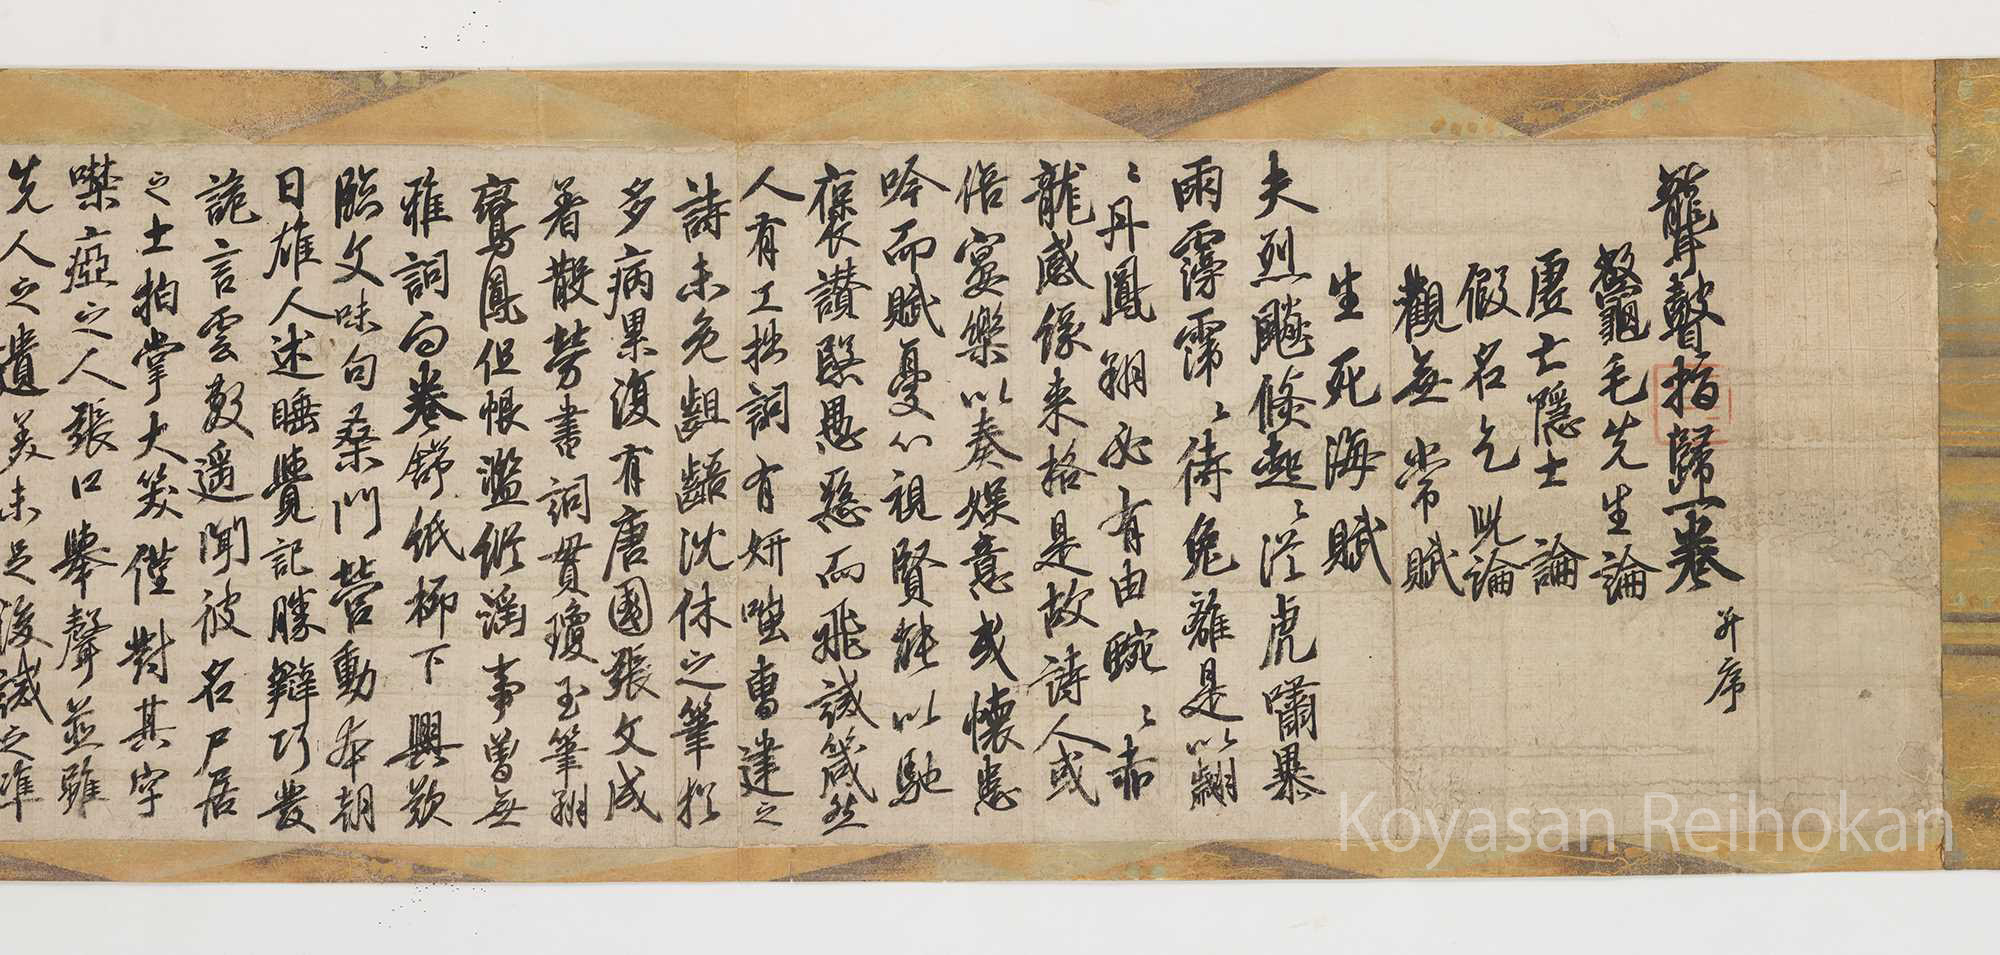 聾瞽指歸一卷 并序
鼇龜毛先生論
虛亡隱士論
假名乞兒論
觀無常賦
生死海賦
夫烈飈倏起〻從虎嘯暴
雨霶霈〻待兔離是以翩
〻丹鳳翔必有由蜿〻赤
龍感緣来格是故詩人或
倍宴樂以奏娛意或懷悲
吟而賦憂心視賢能以馳
褒讃豎愚惡而飛誡箴然
人有工拙詞有妍嗤曹建之
詩未免齟齬沈休之筆猶
多病累復有唐國張文成
著散勞書詞貫瓊玉筆翔
鸞鳳但恨濫縱淫事曾無
雅詞面卷舒紙柳下興歎
臨文味句桑門營動本朝
日雄人述睡覺記勝辯巧發
詭言雲敷遥聞彼名尸居
之士拍掌大笑僅對其字
噤瘂之人張口舉聲並雖
先人之遺美未足後誡之準
Koyasan Reihokan